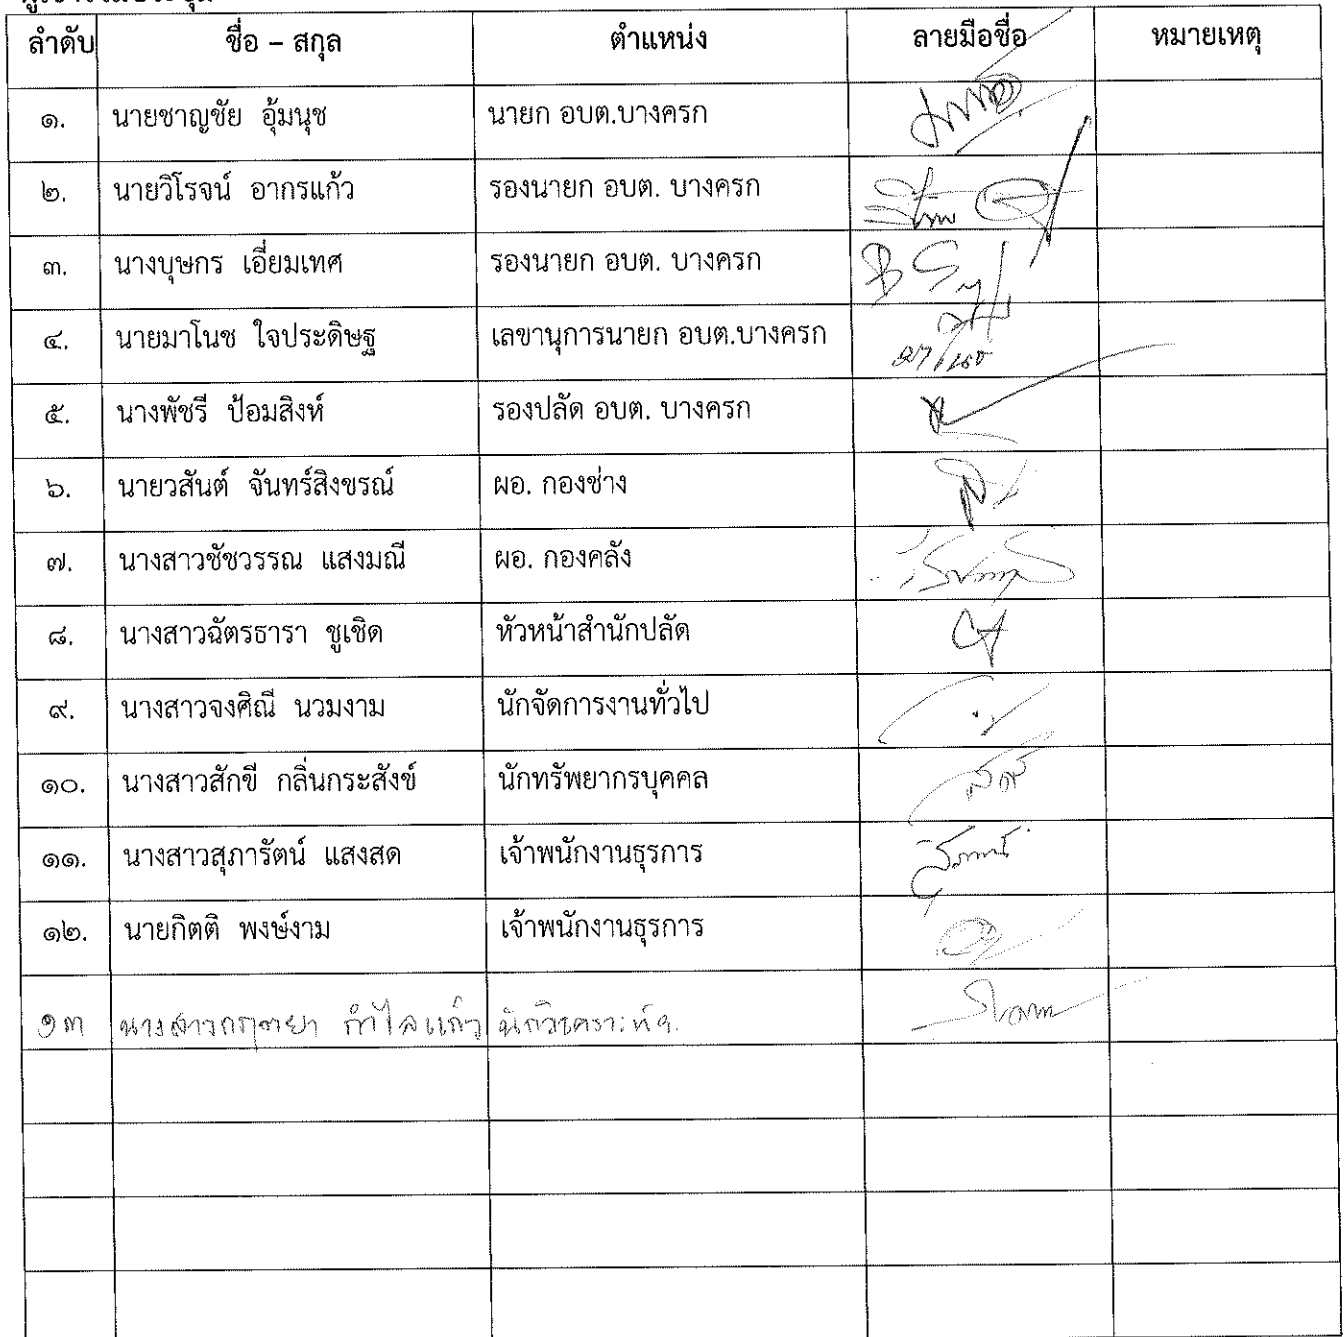 ลำดับ ชื่อ – สกุล ตำแหน่ง ลายมือชื่อ หมายเหตุ
๑. นายชาญชัย อุ้มนุช นายก อบต.บางครก
๒. นายวิโรจน์ อากรแก้ว รองนายก อบต. บางครก
๓. นางบุษกร เอี่ยมเทศ รองนายก อบต. บางครก
๔. นายมาโนช ใจประดิษฐ เลขานุการนายก อบต.บางครก
๕. นางพัชรี ป้อมสิงห์ รองปลัด อบต. บางครก
๖. นายวสันต์ จันทร์สิงขรณ์ ผอ. กองช่าง
๗. นางสาวชัชวรรณ แสงมณี ผอ. กองคลัง
๘. นางสาวฉัตรธารา ชูเชิด หัวหน้าสำนักปลัด
๙. นางสาวจงศิณี นวมงาม นักจัดการงานทั่วไป
๑๐. นางสาวสักขี กลิ่นกระสังข์ นักทรัพยากรบุคคล
๑๑. นางสาวสุภารัตน์ แสงสด เจ้าพนักงานธุรการ
๑๒. นายกิตติ พงษ์งาม เจ้าพนักงานธุรการ
๑๓ นางสาวกฤตยา กำไลแก้ว นักวิเคราะห์ฯ.